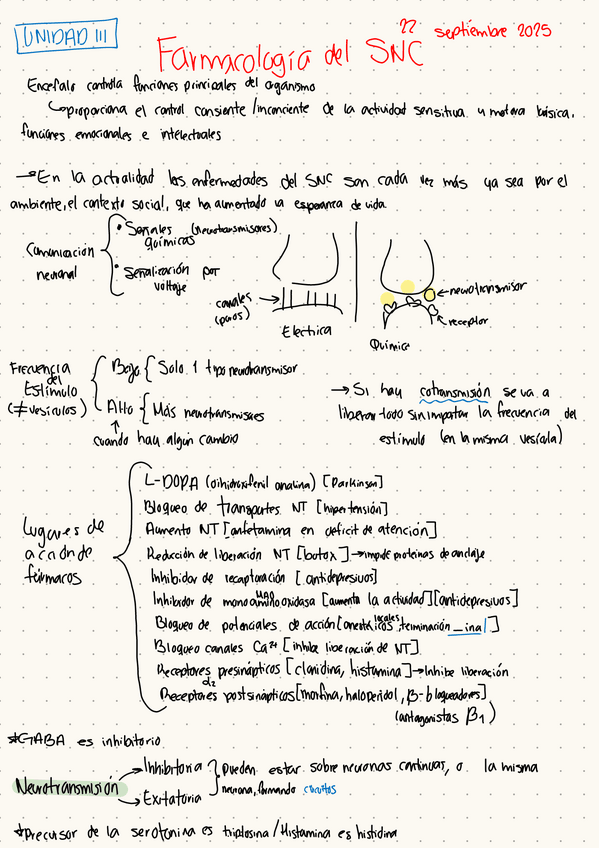 UNIDAD III
22 septiembre 2025
Farmacología del SNC
Encefalo controla funciones principales del organismo
↳proporciona el control consiente/inconciente de la actividad sensitiva y motora básica,
funciones emocionales e intelectuales
→En la actualidad las enfermedades del SNC son cada vez más ya sea por el
ambiente, el contexto social, que ha aumentado la esperanza de vida.
Comunicación
neuronal
• Señales (neurotransmisores)
químicas
• Señalización por
voltaje
canales
(poros)
Electrica
←neurotransmisor
receptor
Química
Frecuencia
del
Estímulo
(≠vesículos)
Baja { Solo 1 tipo neurotransmisor
Alto { Más neurotransmisores
↑
cuando hay algún cambio
→ Si hay cotransmisión se va a
liberar todo sin importar la frecuencia del
estímulo (en la misma vesícula)
Lugares de
acción de
fármacos
L-DOPA (dihidroxifenil analina) [Parkinson]
Bloqueo de transportes NT [hipertensión]
Aumento NT [anfetamina en deficit de atención]
Reducción de liberación NT [botox]→impide proteinas de anclaje
Inhibidor de recaptación [antidepresivos]
Inhibidor de monoaminooxidasa [aumenta la actividad][antidepresivos]
MAO
Bloqueo de potenciales de acción [anestésicos locales, terminación _ina]
Bloqueo canales Ca²⁺ [inhibe liberación de NT]
Receptores presinápticos [clonidina, histamina]→Inhibe liberación
α₂
Receptores postsinápticos [morfina, haloperidol, β-bloqueadores]
(antagonistas β₁)
*GABA es inhibitorio
Neurotransmisión
→Inhibitoria
→Exitatoria
} pueden estar sobre neuronas continuas, o la misma
neurona, formando circuitos
*Precursor de la serotonina es triptosina/Histamina es histidina